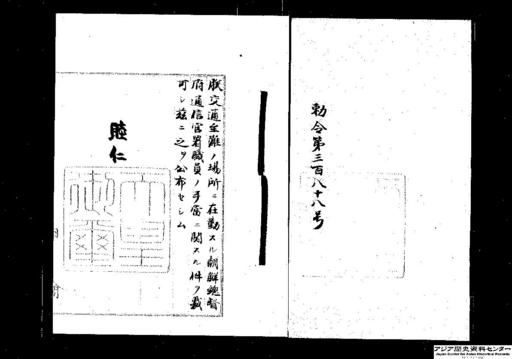 勅令第三百八十八号
朕交通至難ノ場所ニ在勤スル朝鮮総督
府通信官署職員ノ手当ニ関スル件ヲ裁
可シ茲ニ之ヲ公布セシム
睦仁
天皇御璽
アジア歴史資料センター
Japan Center for Asian Historical Records